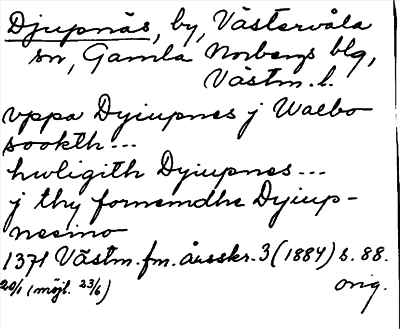 Djupnäs, by, Västervåla
sn, Gamla Norbergs blg,
Västm. l.
vppa Dyiupnes j Waebo
sookth...
hwligith Dyiupnes...
j thy fornemdhe Dyiup-
nesino
1371 Västm. fm. årsskr. 3 (1884) s. 88.
20/1 (möjl. 23/6) orig.